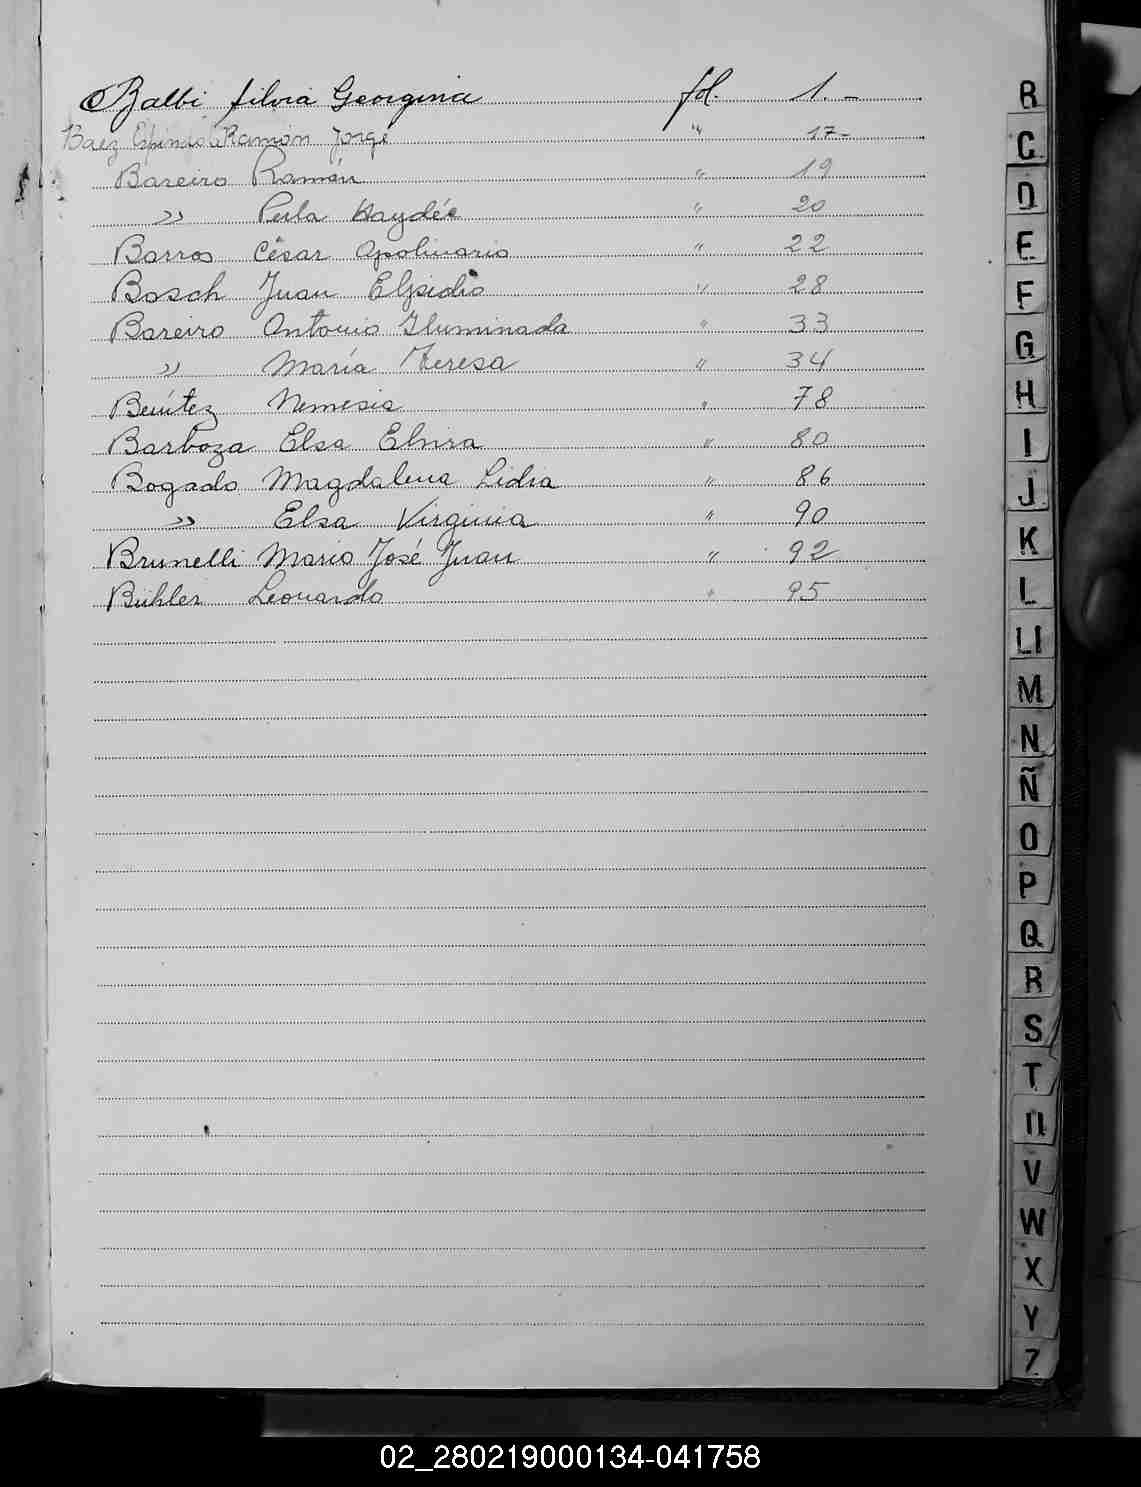 Balbi Silvia Georgina fol. 1.-
Baez Espindola Ramón Jorge " 17-
Bareiro Ramón " 19
" Perla Haydée " 20
Barros César Apolinario " 22
Bosch Juan Elpidio " 28
Bareiro Antonio Iluminada " 33
" María Teresa " 34
Benítez Nemesia " 78
Barboza Elsa Elvira " 80
Bogado Magdalena Lidia " 86
" Elsa Virginia " 90
Brunelli Mario José Juan " 92
Bühler Leonardo " 95
B
C
D
E
F
G
H
I
J
K
L
Ll
M
N
Ñ
O
P
Q
R
S
T
U
V
W
X
Y
Z
02_280219000134-041758